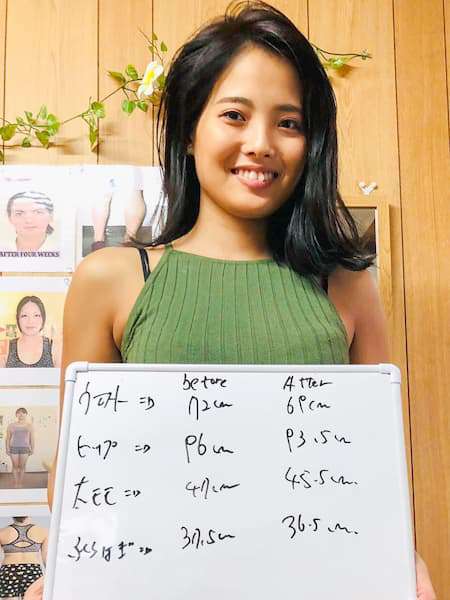 AFTER FOUR WEEKS
before After
ウエスト⇒ 72cm 69cm
ヒップ⇒ 96cm 93.5cm
太モモ⇒ 47cm 45.5cm.
ふくらはぎ⇒ 37.5cm 36.5cm.